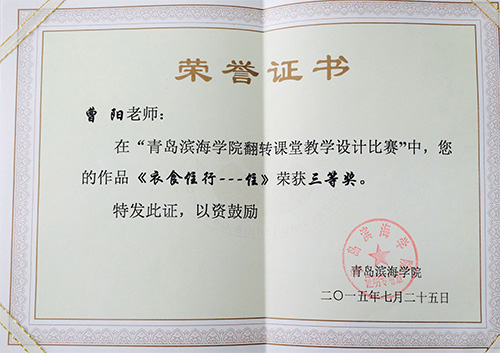 荣誉证书
曹 阳老师：
在“青岛滨海学院翻转课堂教学设计比赛”中，您
的作品《衣食住行---住》荣获三等奖。
特发此证，以资鼓励
青岛滨海学院
二〇一五年七月二十五日